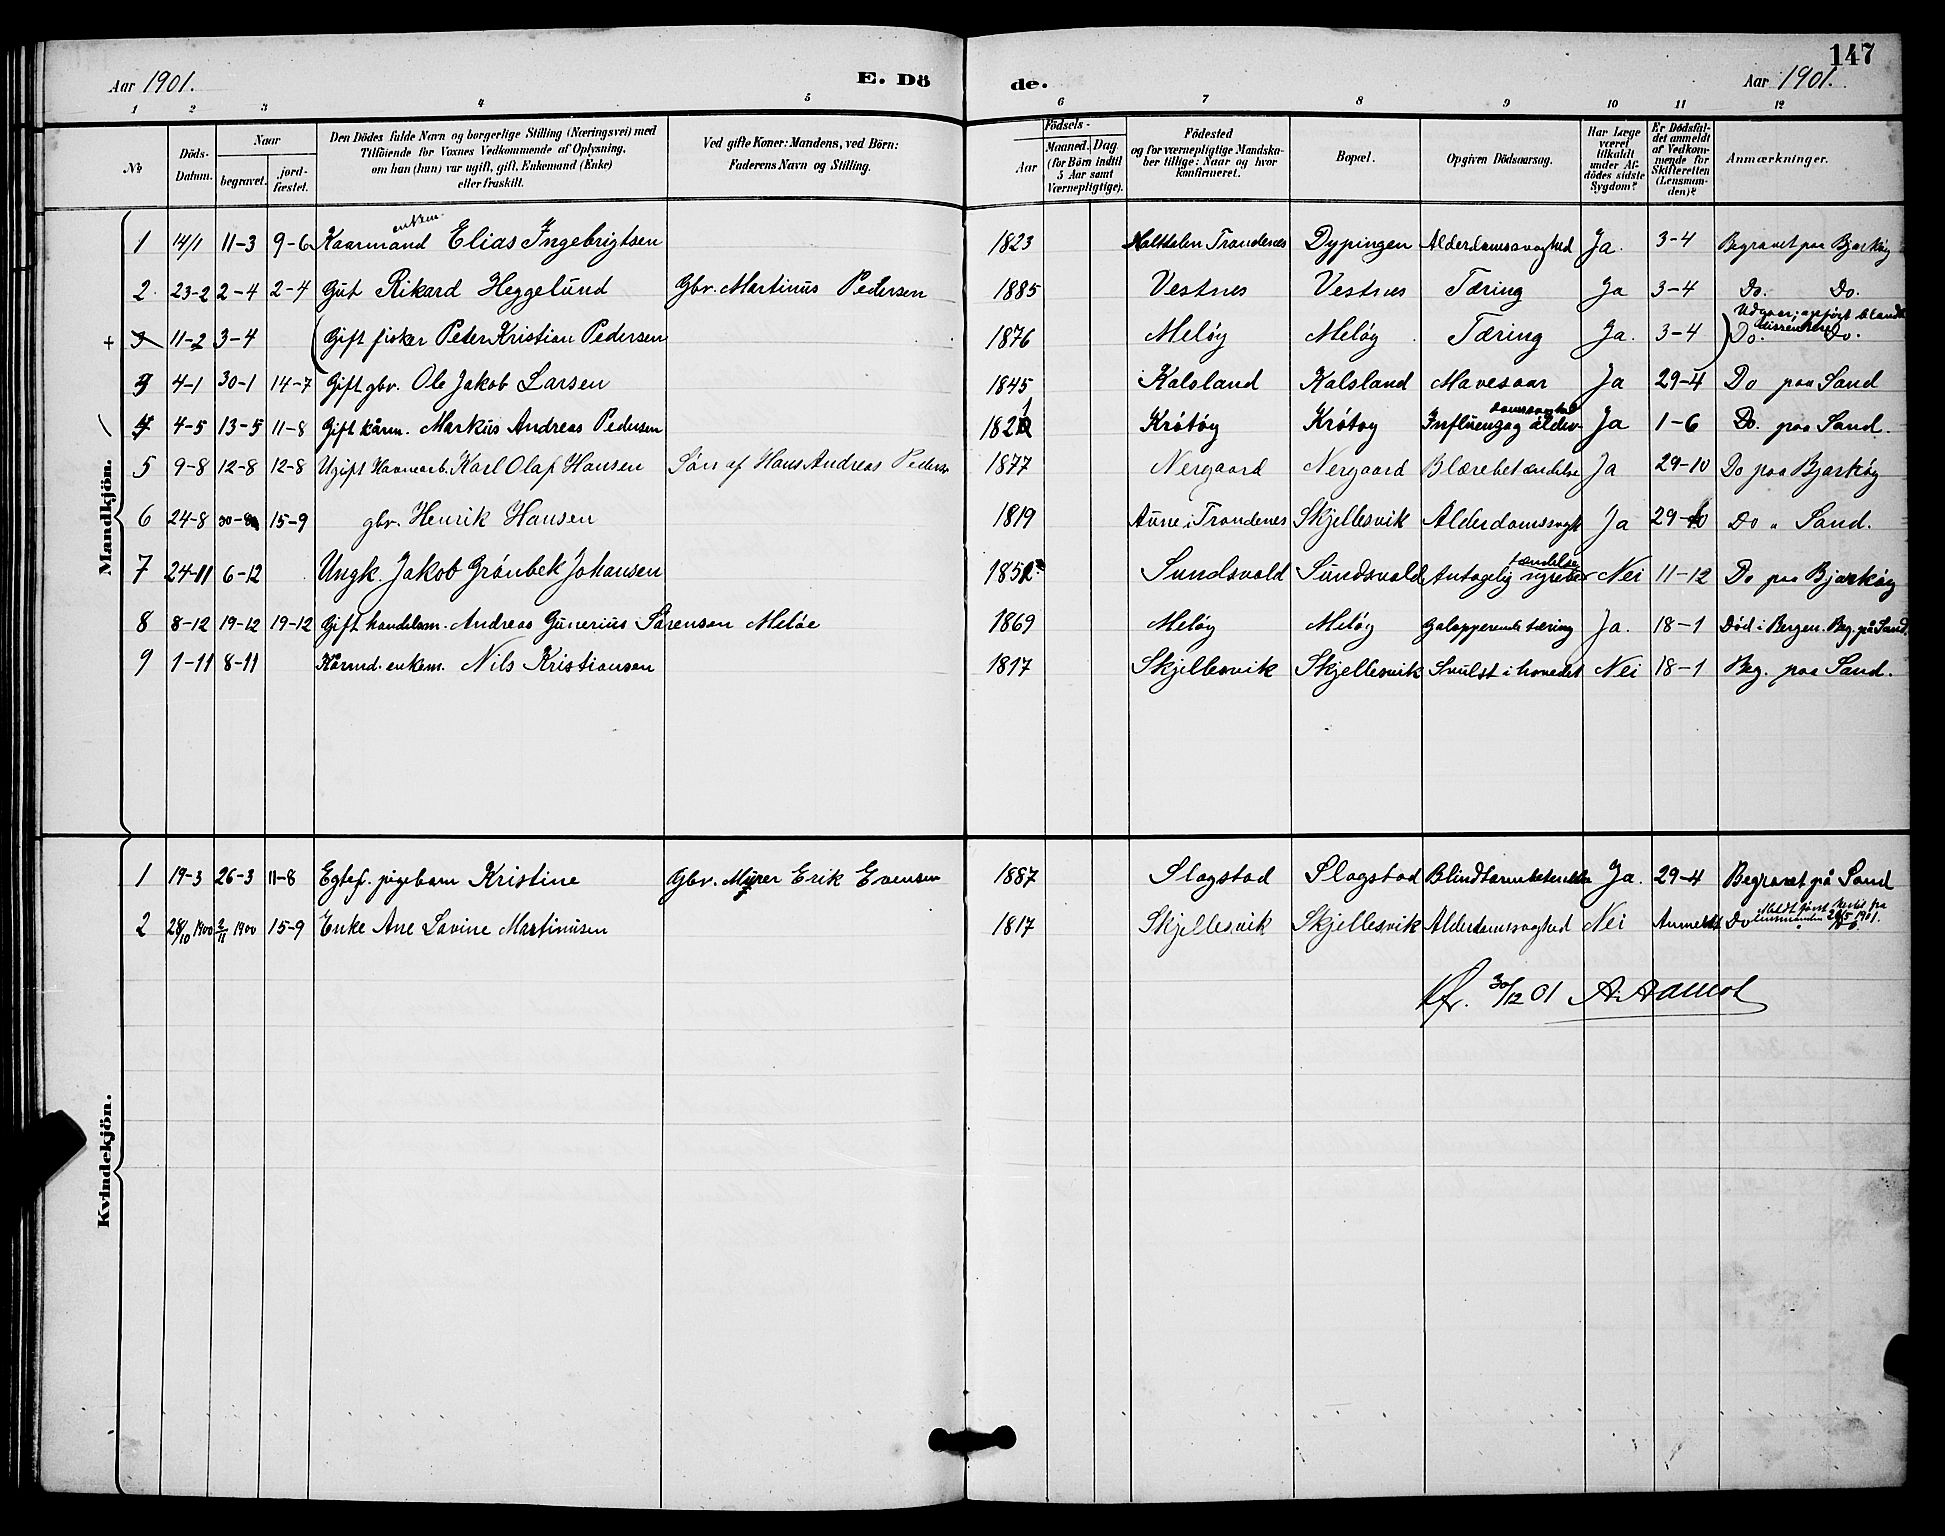 147
Aar 1901. E. Dö de. Aar 1901.
1 2 3 4 5 6 7 8 9 10 11 12
No Döds-Datum. Naar begravet. jord-fæstet. Den Dödes fulde Navn og borgerlige Stilling (Næringsvei) med Tilföiende for Voxnes Vedkommende af Oplysning, om han (hun) var ugift, gift, Enkemand (Enke) eller fraskilt. Ved gifte Koner: Mandens, ved Börn: Faderens Navn og Stilling. Födsels- Aar Maaned. Dag (for Börn indtil 5 Aar samt Værnepligtige). Födested og for værnepligtige Mandska-ber tillige: Naar og hvor konfirmeret. Bopæl. Opgiven Dödsaarsag. Har Læge været tilkaldt under Af-dödes sidste Sygdom? Er Dödsfal-det anmeldt af Vedkom-mende for Skifteretten (Lensman-den)? Anmærkninger.
Mandkjön.
1 14/1 11-3 9-6 Kaarmand enkem. Elias Ingebrigtsen 1823 Trondenes Dypingen Alderdomssvaghed Ja. 3-4 Begravet paa Bjarköy
2. 23-2 2-4 2-4 Gut Rikard Heggelund Gbr. Martinus Pedersen 1885 Vestnes Vestnes Tæring Ja 3-4 Do. Do.
+ 3 11-2 3-4 (Gift fisker Peter Kristian Pedersen 1876 Meløy Meløy Tæring Ja. 3-4 ) Do. Do. Udgaar; anført blandt dissenterne
3 4-1 30-1 14-7 Gift gbr. Ole Jakob Larsen 1845 Kalsland Kalsland Mavesaar Ja 29-4 Do paa Sand
4 4-5 13-5 11-8 Gift kårm. Markus Andreas Pedersen 1821 Krøtøy Krøtøy Influenza og alder-domssvaghed Ja 1-6 Do. paa Sand.
5 9-8 12-8 12-8 Ugift Havnearb. Karl Olaf Hansen Søn af Hans Andreas Pedersen 1877 Nergaard Nergaard Blærebetændelse Ja 29-10 Do paa Bjarköy
6 24-8 30-8 15-9 gbr. Henrik Hansen 1819 Aune i Trondenes Skjellesvik Alderdomssvgh Ja 29-10 Do " Sand.
7 24-11 6-12 Ungk. Jakob Grønbek Johansen 1852 Sundsvold Sundsvold Antagelig nyrebe-tændelse Nei 11-12 Do paa Bjarköy
8 8-12 19-12 19-12 Gift handelsm. Andreas Gunerius Sørensen Meløe 1869 Meløy Meløy Galopperende tæring Ja. 18-1 Død i Bergen. Beg. på Sand.
9 1-11 8-11 Kårmd. enkem. Nils Kristiansen 1817 Skjellesvik Skjellesvik Svulst i hovedet Nei 18-1 Beg. paa Sand.
Kvindekjön.
1 19-3 26-3 11-8 Egtef. pigebarn Kristine Gbr. Murer Erik Evensen 1887 Slagstad Slagstad Blindtarmbetændelse Ja. 29-4 Begravet på Sand
2 28/10 1900 2/11 1900 15-9 Enke Ane Lavine Martinusen 1817 Skjellesvik Skjellesvik Alderdomssvaghed Nei Anmeldt Do Meldt først fra lensmanden 1901.
30/12 01 A. Aamot